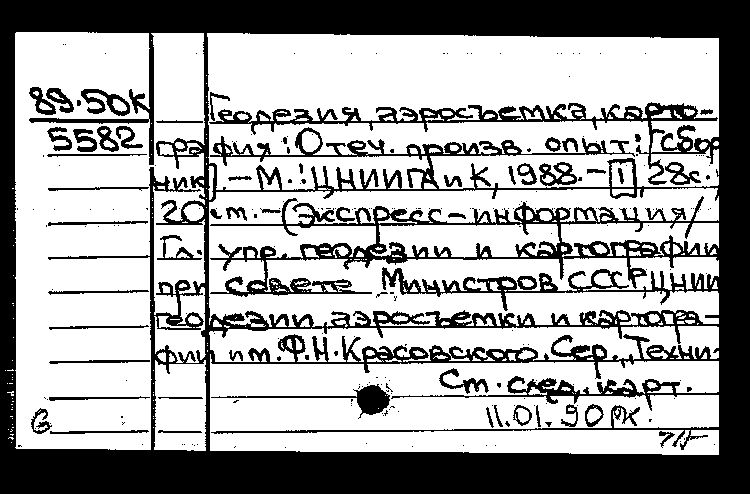 89.50К
5582
Геодезия, аэросъемка, карто-
графия : Отеч. произв. опыт : [Сбор
ник]. — М. : ЦНИИГАиК, 1988. — [1], 28с. ;
20 см. — (Экспресс-информация/
Гл. упр. геодезии и картографии
при Совете Министров СССР, ЦНИИ
геодезии, аэросъемки и картогра-
фии им. Ф.Н. Красовского. Сер. „Техни-
См. след. карт.
11.01.90 РК